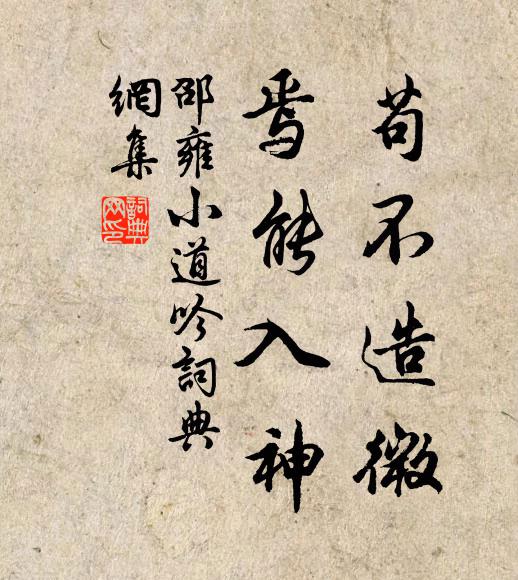 苟不造微
焉能入神
邵雍小道吟詞典
網集
詞典
网印